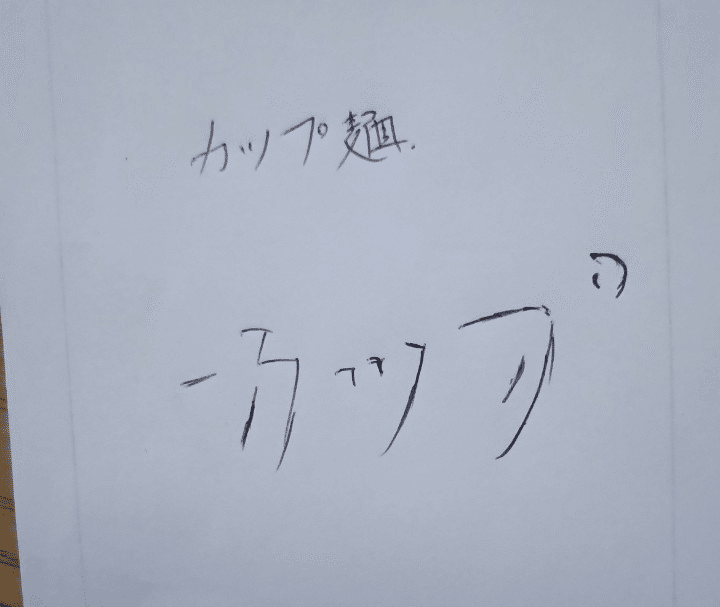 カップ麺.
カップ